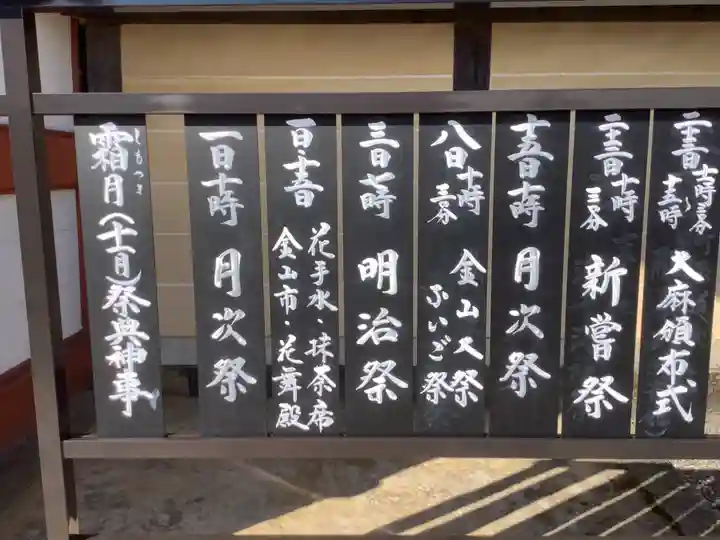 霜月(十一月)祭典神事
しもつき
一日十時 月次祭
一日 十五日
花手水・抹茶席
金山市・花舞殿
三日十時 明治祭
八日 十時三十分
金山大祭
ふいご祭
十五日十時 月次祭
二十三日 十時三十分 新嘗祭
二十三日 十一時三十分〜十五時 大麻頒布式